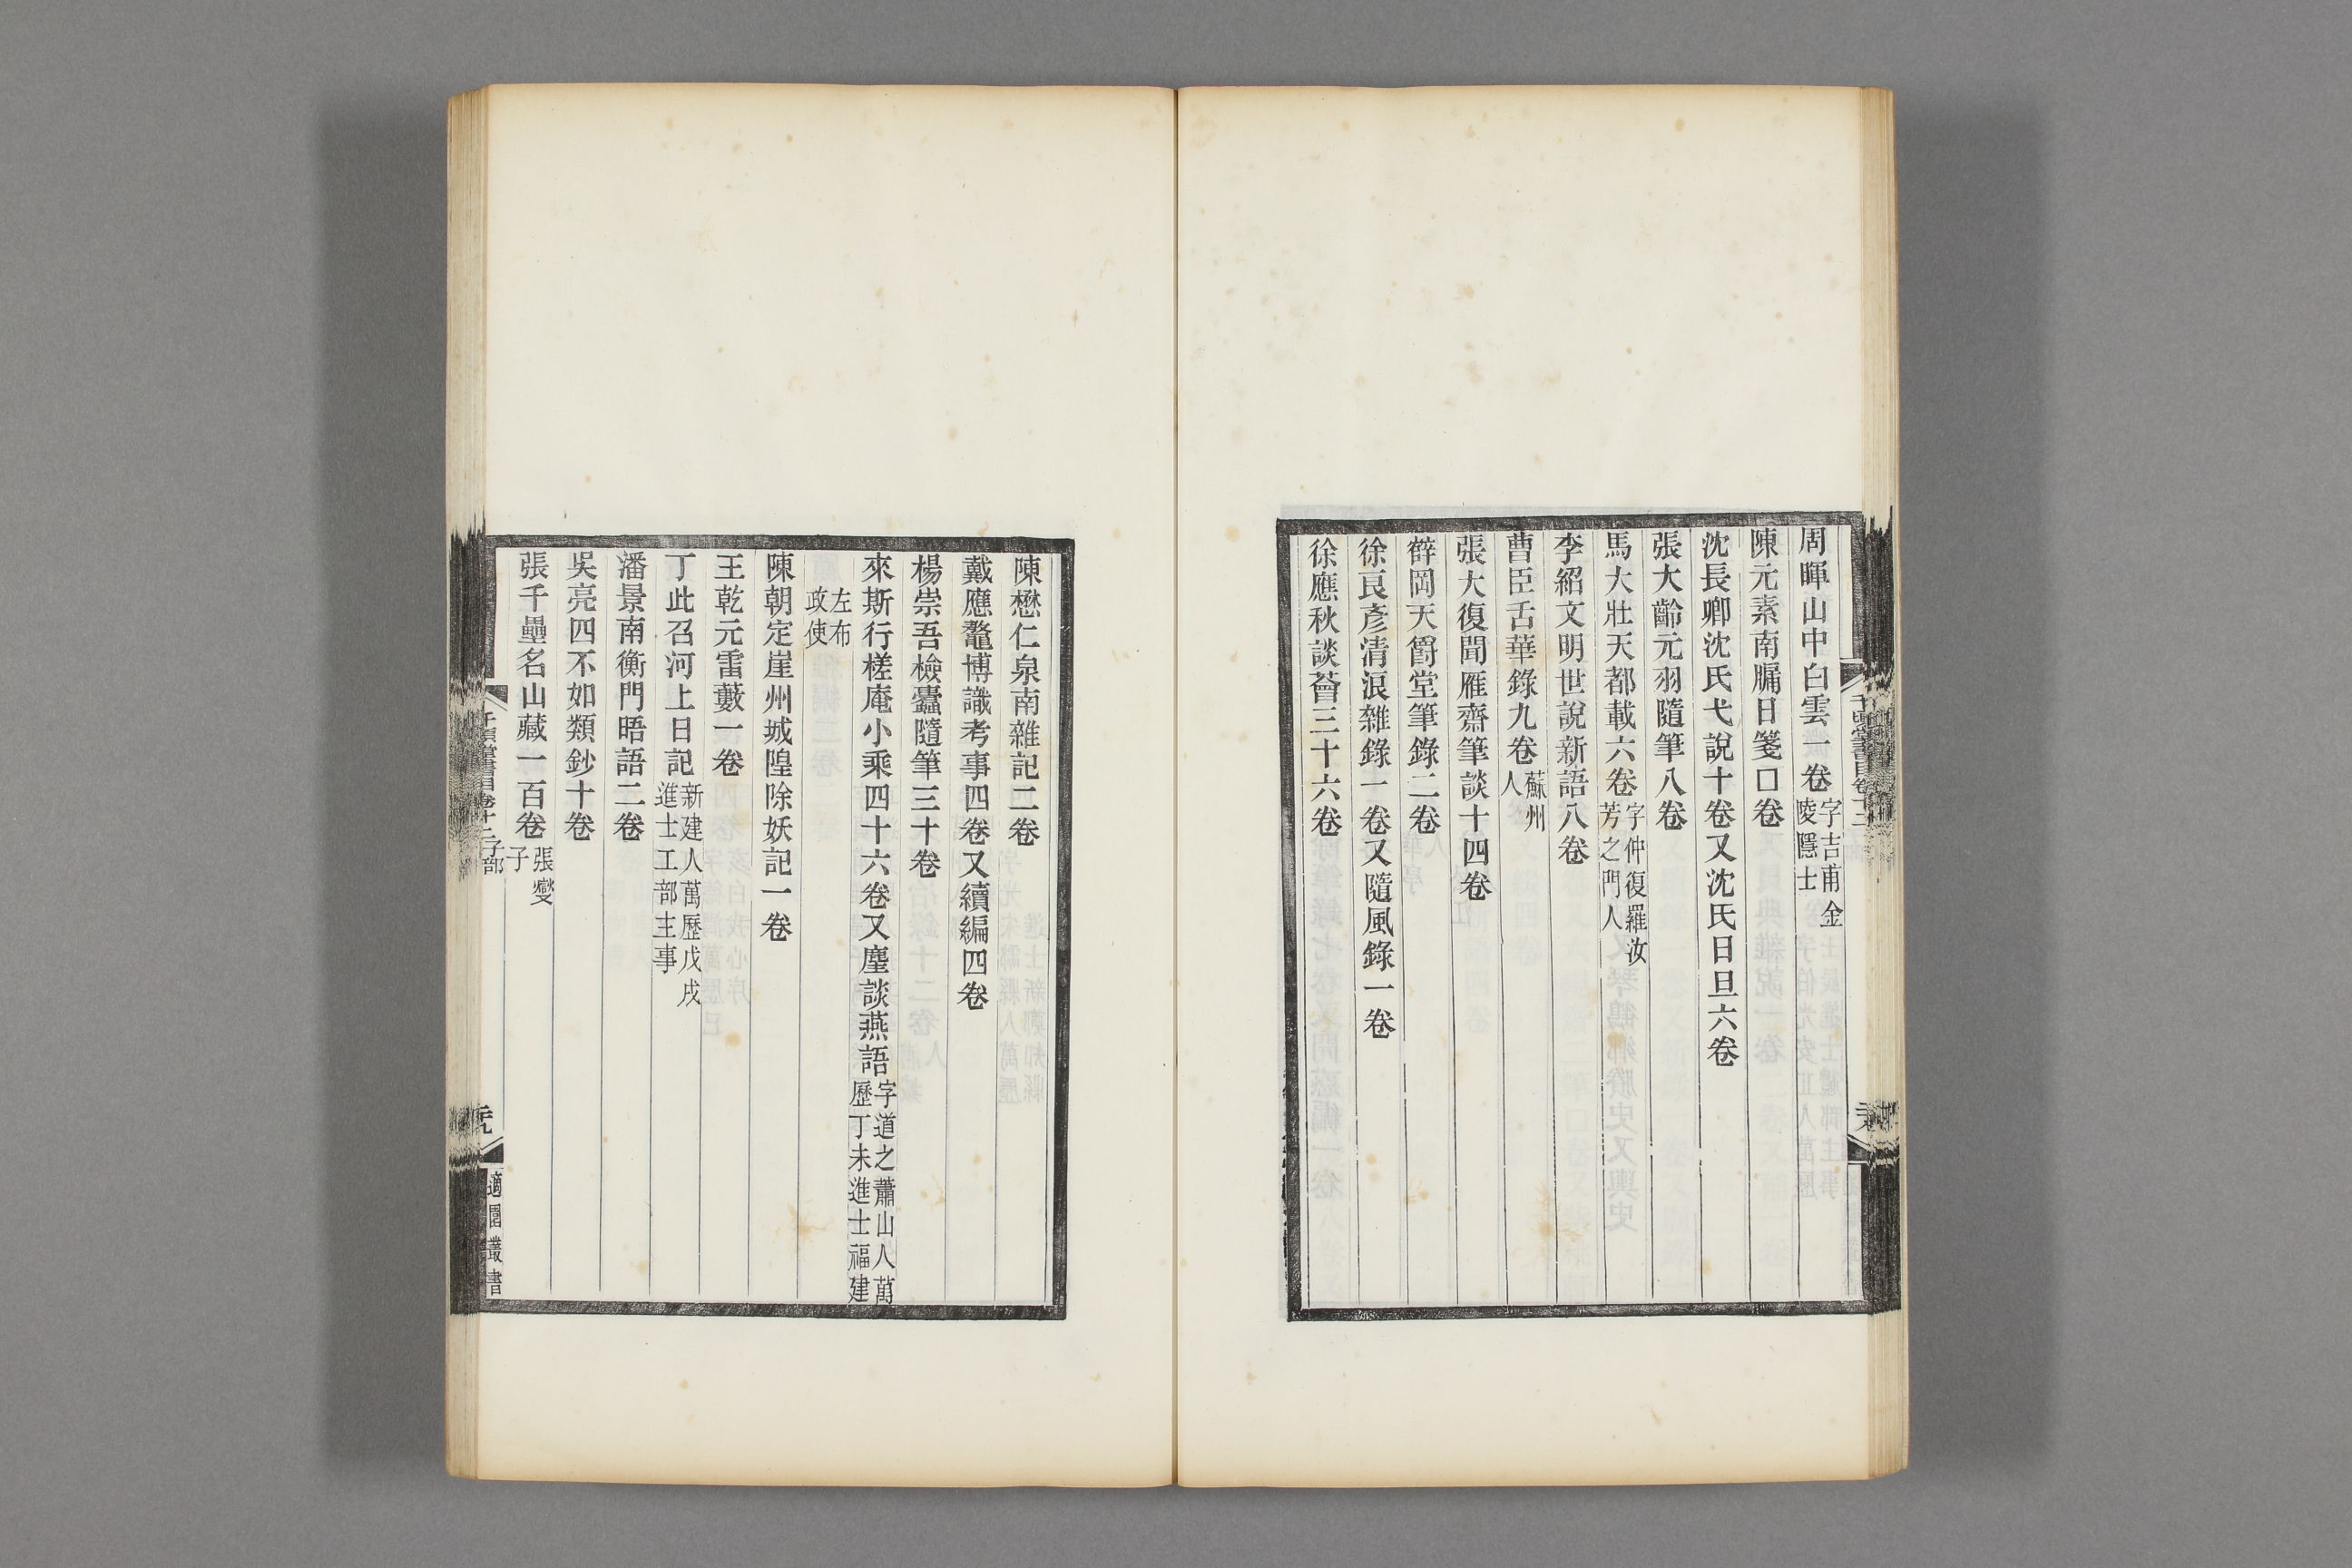 周暉山中白雲一卷字吉甫金陵隱士
陳元素南牖日箋口卷
沈長卿沈氏弋說十卷又沈氏日旦六卷
張大齡元羽隨筆八卷
馬大壯天都載六卷字仲復羅汝芳之門人
李紹文明世說新語八卷
曹臣舌華錄九卷蘇州人
張大復聞雁齋筆談十四卷
薜岡天爵堂筆錄二卷
徐㫰彥清浪雜錄一卷又隨風錄一卷
徐應秋談薈三十六卷
陳懋仁泉南雜記二卷
戴應鼇博識考事四卷又續編四卷
楊崇吾檢蠹隨筆三十卷
來斯行槎庵小乘四十六卷又麈談燕語字道之蕭山人萬歷丁未進士福建
左布政使
陳朝定崖州城隍除妖記一卷
王乾元雷藪一卷
丁此召河上日記新建人萬歷戊戌進士工部主事
潘景南衡門晤語二卷
吳亮四不如類鈔十卷
張千壘名山藏一百卷張燮子
千頃堂書目卷十二子部
適園叢書